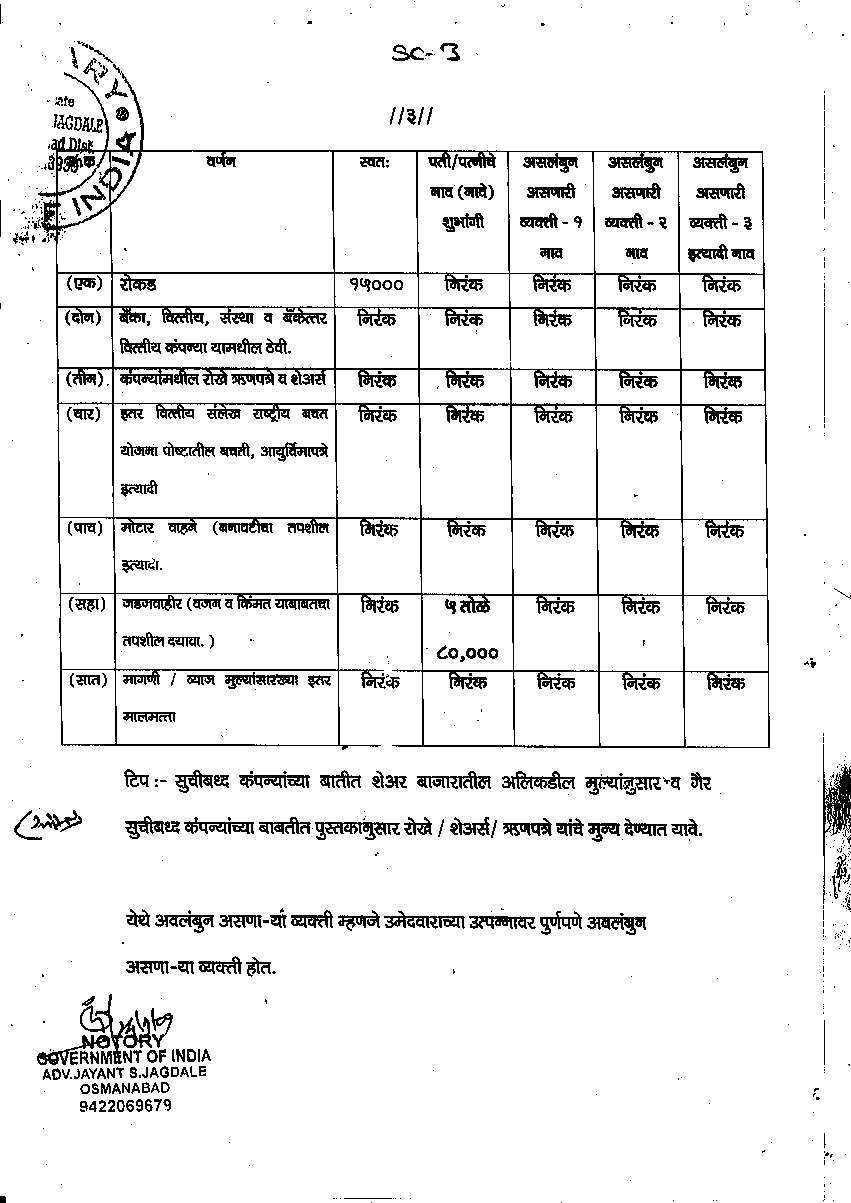 SC-3
//३//
वर्णन स्वत: पती/पत्नीचे नाव (नावे) शुभांगी असलंबुन असणारी व्यक्ती - १ नाव असलंबुन असणारी व्यक्ती - २ नाव असलंबुन असणारी व्यक्ती - ३ इत्यादी नाव
(एक) रोकड १५००० निरंक निरंक निरंक निरंक
(दोन) बँका, वित्तीय, संस्था व बँकेत्तर निरंक निरंक निरंक निरंक निरंक
वित्तीय कंपन्या यामधील ठेवी.
(तीन) कंपन्यांमधील रोखे ऋणपत्रे व शेअर्स निरंक निरंक निरंक निरंक निरंक
(चार) इतर वित्तीय संलेख राष्ट्रीय बचत निरंक निरंक निरंक निरंक निरंक
योजना पोष्टातील बचती, आयुर्विमापत्रे
इत्यादी
(पाच) मोटार वाहने (बनावटीचा तपशील निरंक निरंक निरंक निरंक निरंक
इत्यादी.
(सहा) जडजवाहीर (वजन व किंमत याबाबतचा निरंक ५ तोळे निरंक निरंक निरंक
तपशील दयावा. ) ८०,०००
(सात) मागणी / व्याज मुल्यांसारख्या इतर निरंक निरंक निरंक निरंक निरंक
मालमत्ता
टिप :- सुचीबध्द कंपन्यांच्या बातीत शेअर बाजारातील अलिकडील मुल्यांनुसार व गैर
सुचीबध्द कंपन्यांच्या बाबतीत पुस्तकानुसार रोखे / शेअर्स/ ऋणपत्रे यांचे मुल्य देण्यात यावे.
येथे अवलंबुन असणा-या व्यक्ती म्हणजे उमेदवाराच्या उत्पन्नावर पुर्णपणे अवलंबुन
असणा-या व्यक्ती होत.
NOTORY
GOVERNMENT OF INDIA
ADV.JAYANT S.JAGDALE
OSMANABAD
9422069679
JAGDALE
INDIA